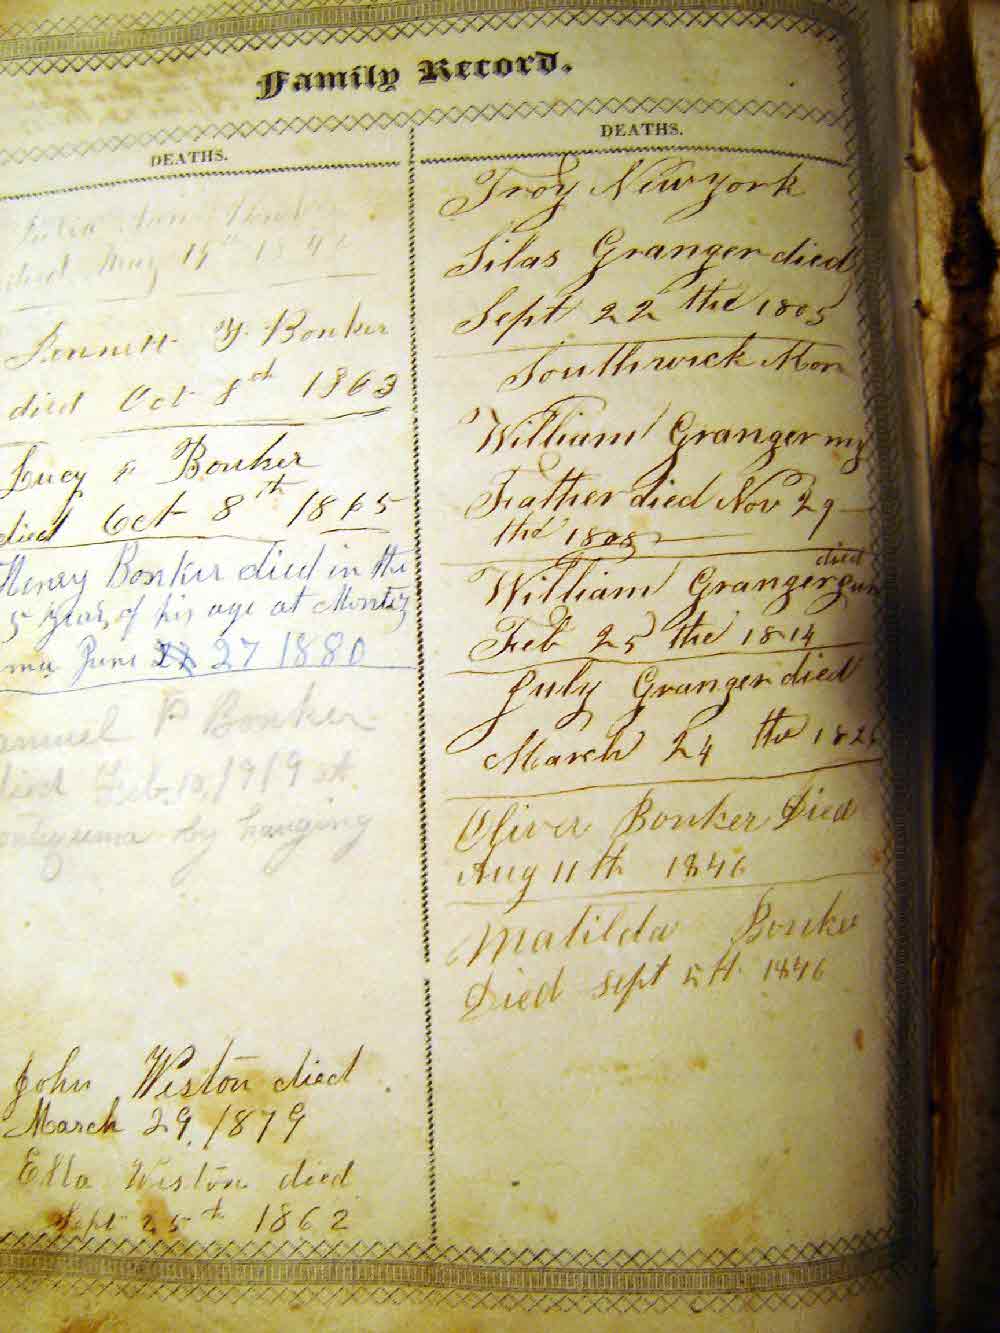 Family Record.
DEATHS.
Julia Ann
died May 19th 1842
Y. Bonker
died Oct 8th 1863
Lucy Bonker
died Oct 8th 1865
Henry Bonker died in the
5 year of his age at Montez
ma June 27 1880
amuel P Bonker
died Feb. 10, 1919 at
ontezuma by hanging
John Weston died
March 29, 1879
Ella Weston died
Sept 25th 1862
DEATHS.
Troy Newyork
Silas Granger died
Sept 22 the 1805
Southwick
William Granger my
Father died Nov 29
the 1808
died
William Granger jun
Feb 25 the 1814
July Granger died
March 24 the 182
Oliver Bonker Died
Aug 11th 1846
Matilda Bonke
Died Sept 5th 1846